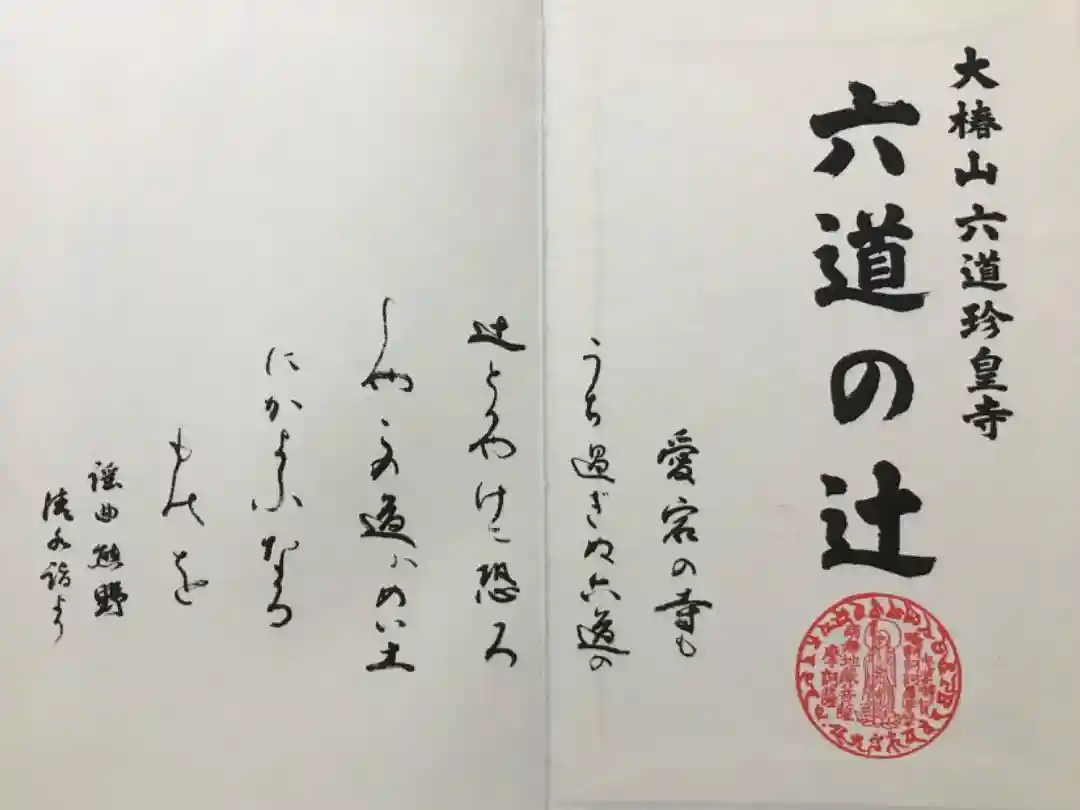 大椿山六道珍皇寺
六道の辻
愛宕の寺も
うち過ぎぬ六道の
辻とかやげに恐ろ
しやこの道ハめい土
にかよふなる
ものを
謡曲熊野
清水詣より
南無地蔵菩薩
摩訶薩